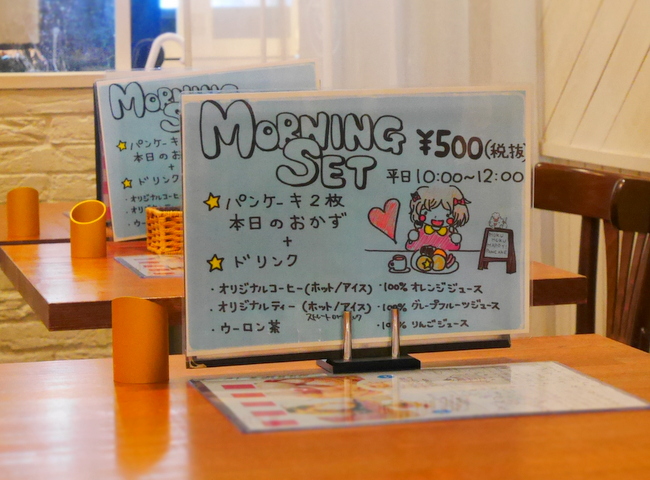 MORNING SET
¥500(税抜)
平日10:00~12:00
パンケーキ2枚
本日のおかず
+
ドリンク
・オリジナルコーヒー(ホット/アイス)
・オリジナルティー(ホット/アイス)
・ウーロン茶
・100%オレンジジュース
・100%グレープフルーツジュース
・100%りんごジュース
MORNING
パンケーキ
本日のお
+
ドリンク